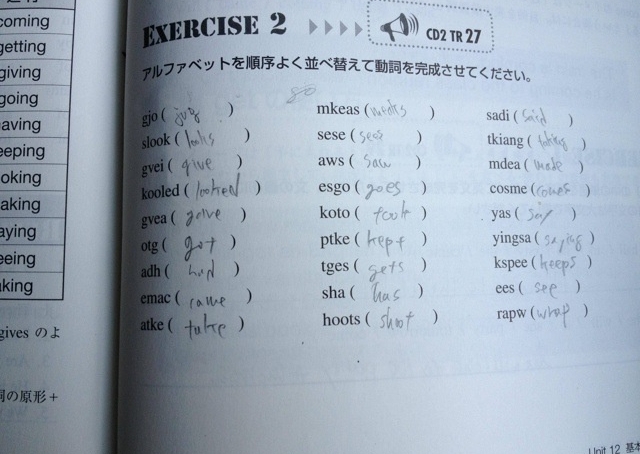 coming
getting
giving
going
aving
eeping
ooking
aking
aying
eeing
aking
gives のよ
詞の原形+
EXERCISE 2 CD2 TR 27
アルファベットを順序よく並べ替えて動詞を完成させてください。
gjo ( ) mkeas ( ) sadi ( said )
slook ( looks ) sese ( sees ) tkiang ( taking )
gvei ( give ) aws ( saw ) mdea ( made )
kooled ( looked ) esgo ( goes ) cosme ( comes )
gvea ( gave ) koto ( took ) yas ( say )
otg ( got ) ptke ( kept ) yingsa ( saying )
adh ( had ) tges ( gets ) kspee ( keeps )
emac ( came ) sha ( has ) ees ( see )
atke ( take ) hoots ( shoot ) rapw ( wrap )
Unit 12 基本